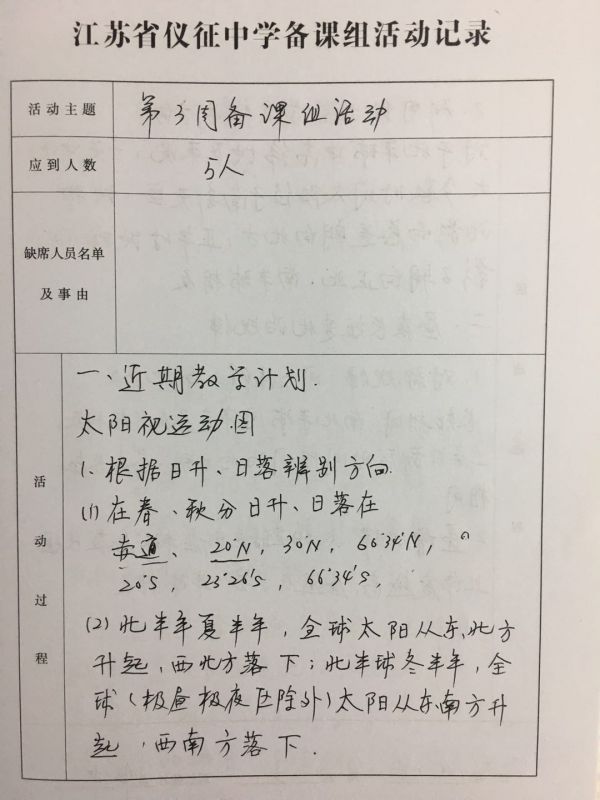 江苏省仪征中学备课组活动记录
活动主题
第3周备课组活动
应到人数
5人
缺席人员名单
及事由
活动过程
一、近期教学计划.
太阳视运动图
1. 根据日升、日落辨别方向.
(1) 在春、秋分日升、日落在
赤道、20°N, 30°N, 66°34'N,
20°S, 23°26'S, 66°34'S,
(2) 北半年夏半年, 全球太阳从东北方
升起, 西北方落下; 北半球冬半年, 全
球 (极昼极夜区除外) 太阳从东南方升
起, 西南方落下.